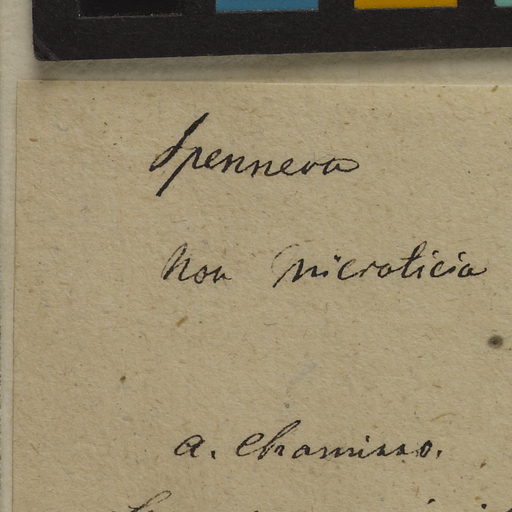 Spennera
non microlicia
A. Chamisso.